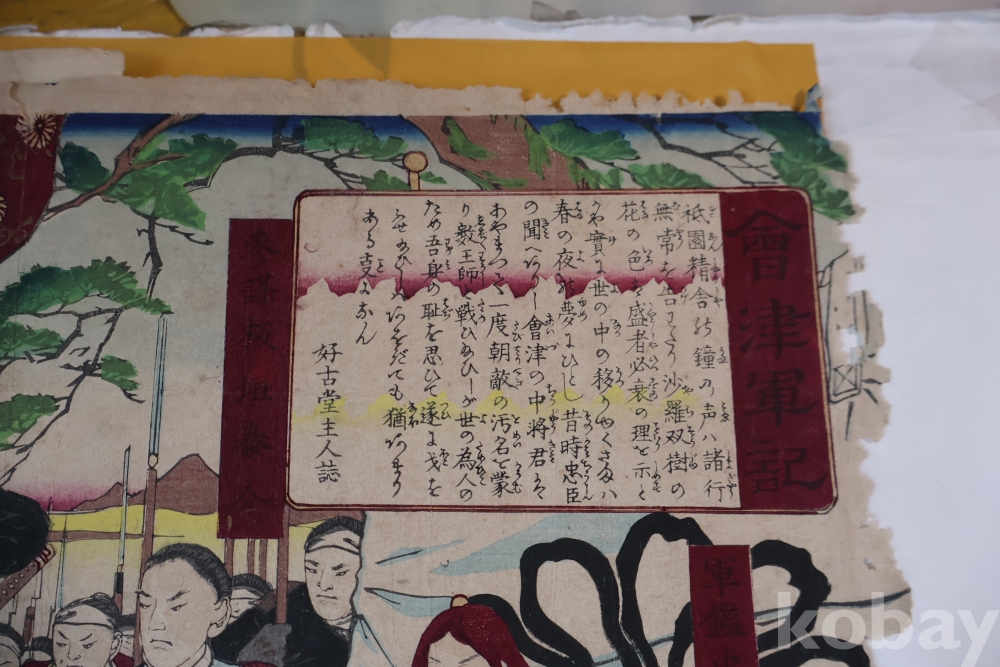 會津軍記
祇園精舎の鐘の声ハ諸行
無常を告わたり沙羅双樹の
花の色ハ盛者必衰の理を示と
かや實に世の中の移りかやくさまハ
春の夜の夢にひとし昔時忠臣
の聞へありし會津の中将君ハ
あやまつて一度朝敵の汚名を蒙
り數王師と戦ひ
世の為人の
ため吾身の恥を忍ひて遂に戈を
ふせ
猶あまり
ある
好古堂主人誌
參謀板垣
軍鑑
kobay